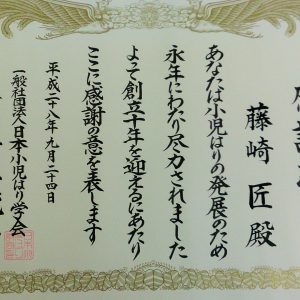 藤崎 匠 殿
あなたは小児はりの発展のため
永年にわたり尽力されました
よって創立十年を迎えるにあたり
ここに感謝の意を表します
平成二十八年九月二十四日
一般社団法人日本小児はり学会